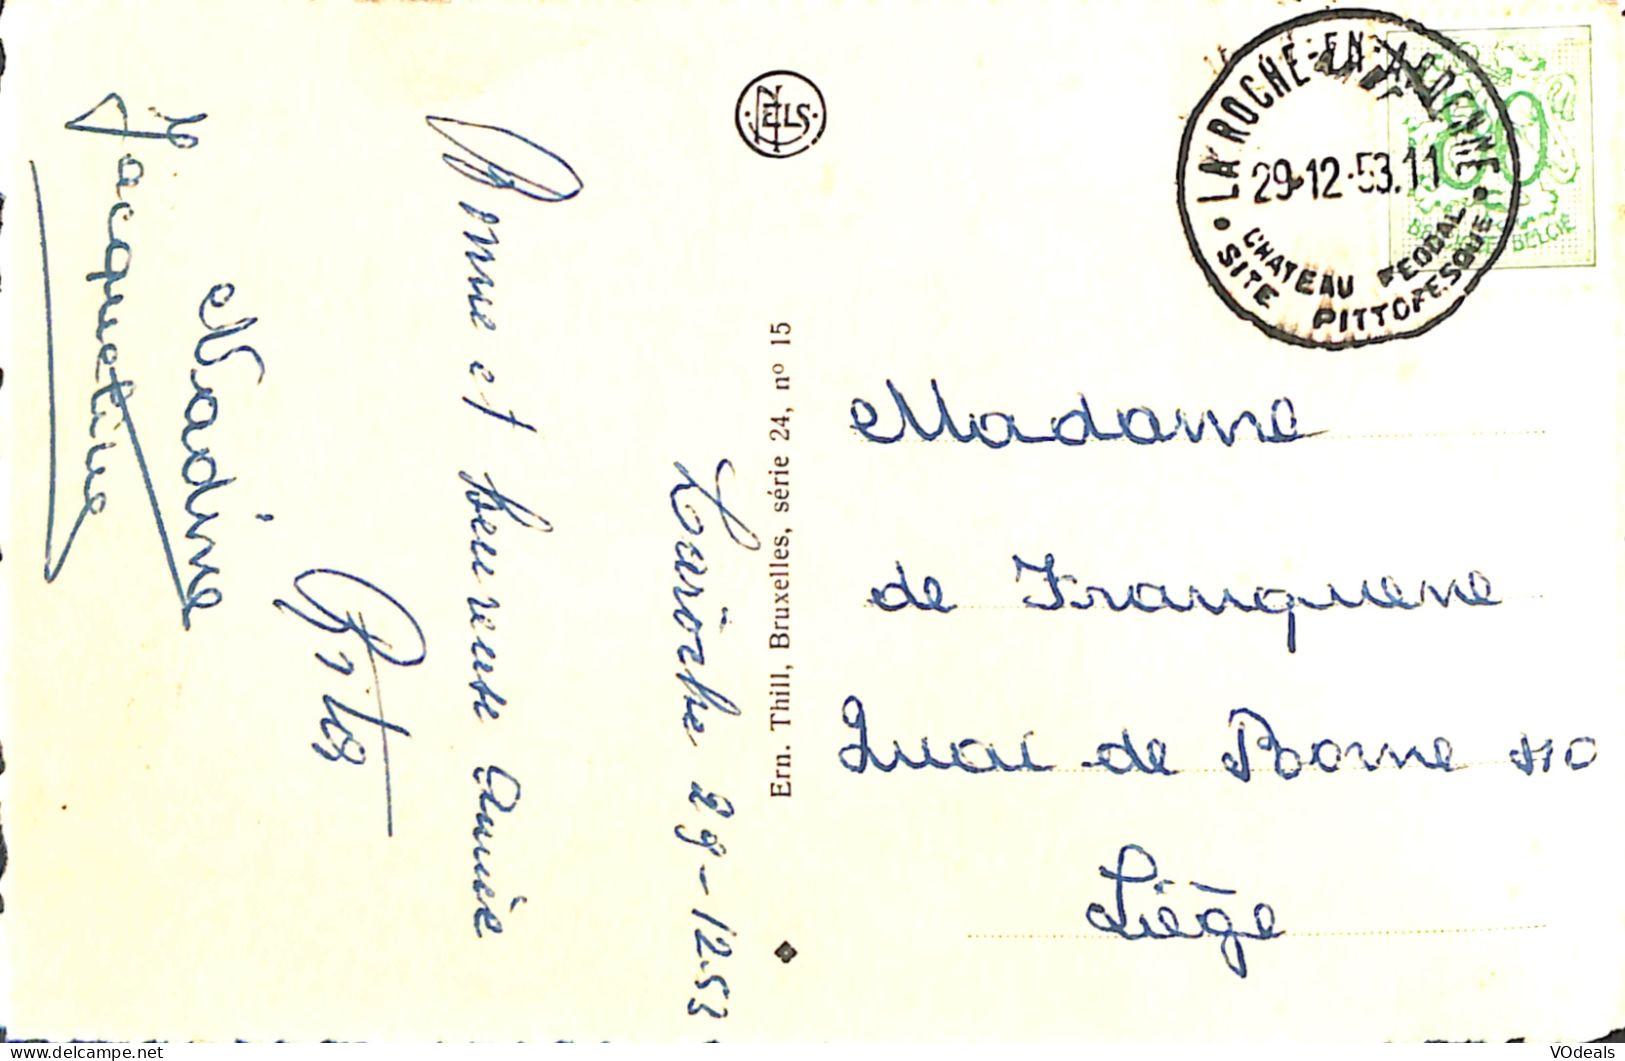 Laroche 29-12.53
Bonne et heureuse Année
Nadine
Jacqueline
NELS
Ern. Thill, Bruxelles, série 24, nº 15
LA ROCHE-EN-ARDENNE
29-12-53.11
CHATEAU FEODAL
SITE PITTORESQUE
BELGIE
Madame
de Franquene
Quai de Rome 110
Liège
VOdeals